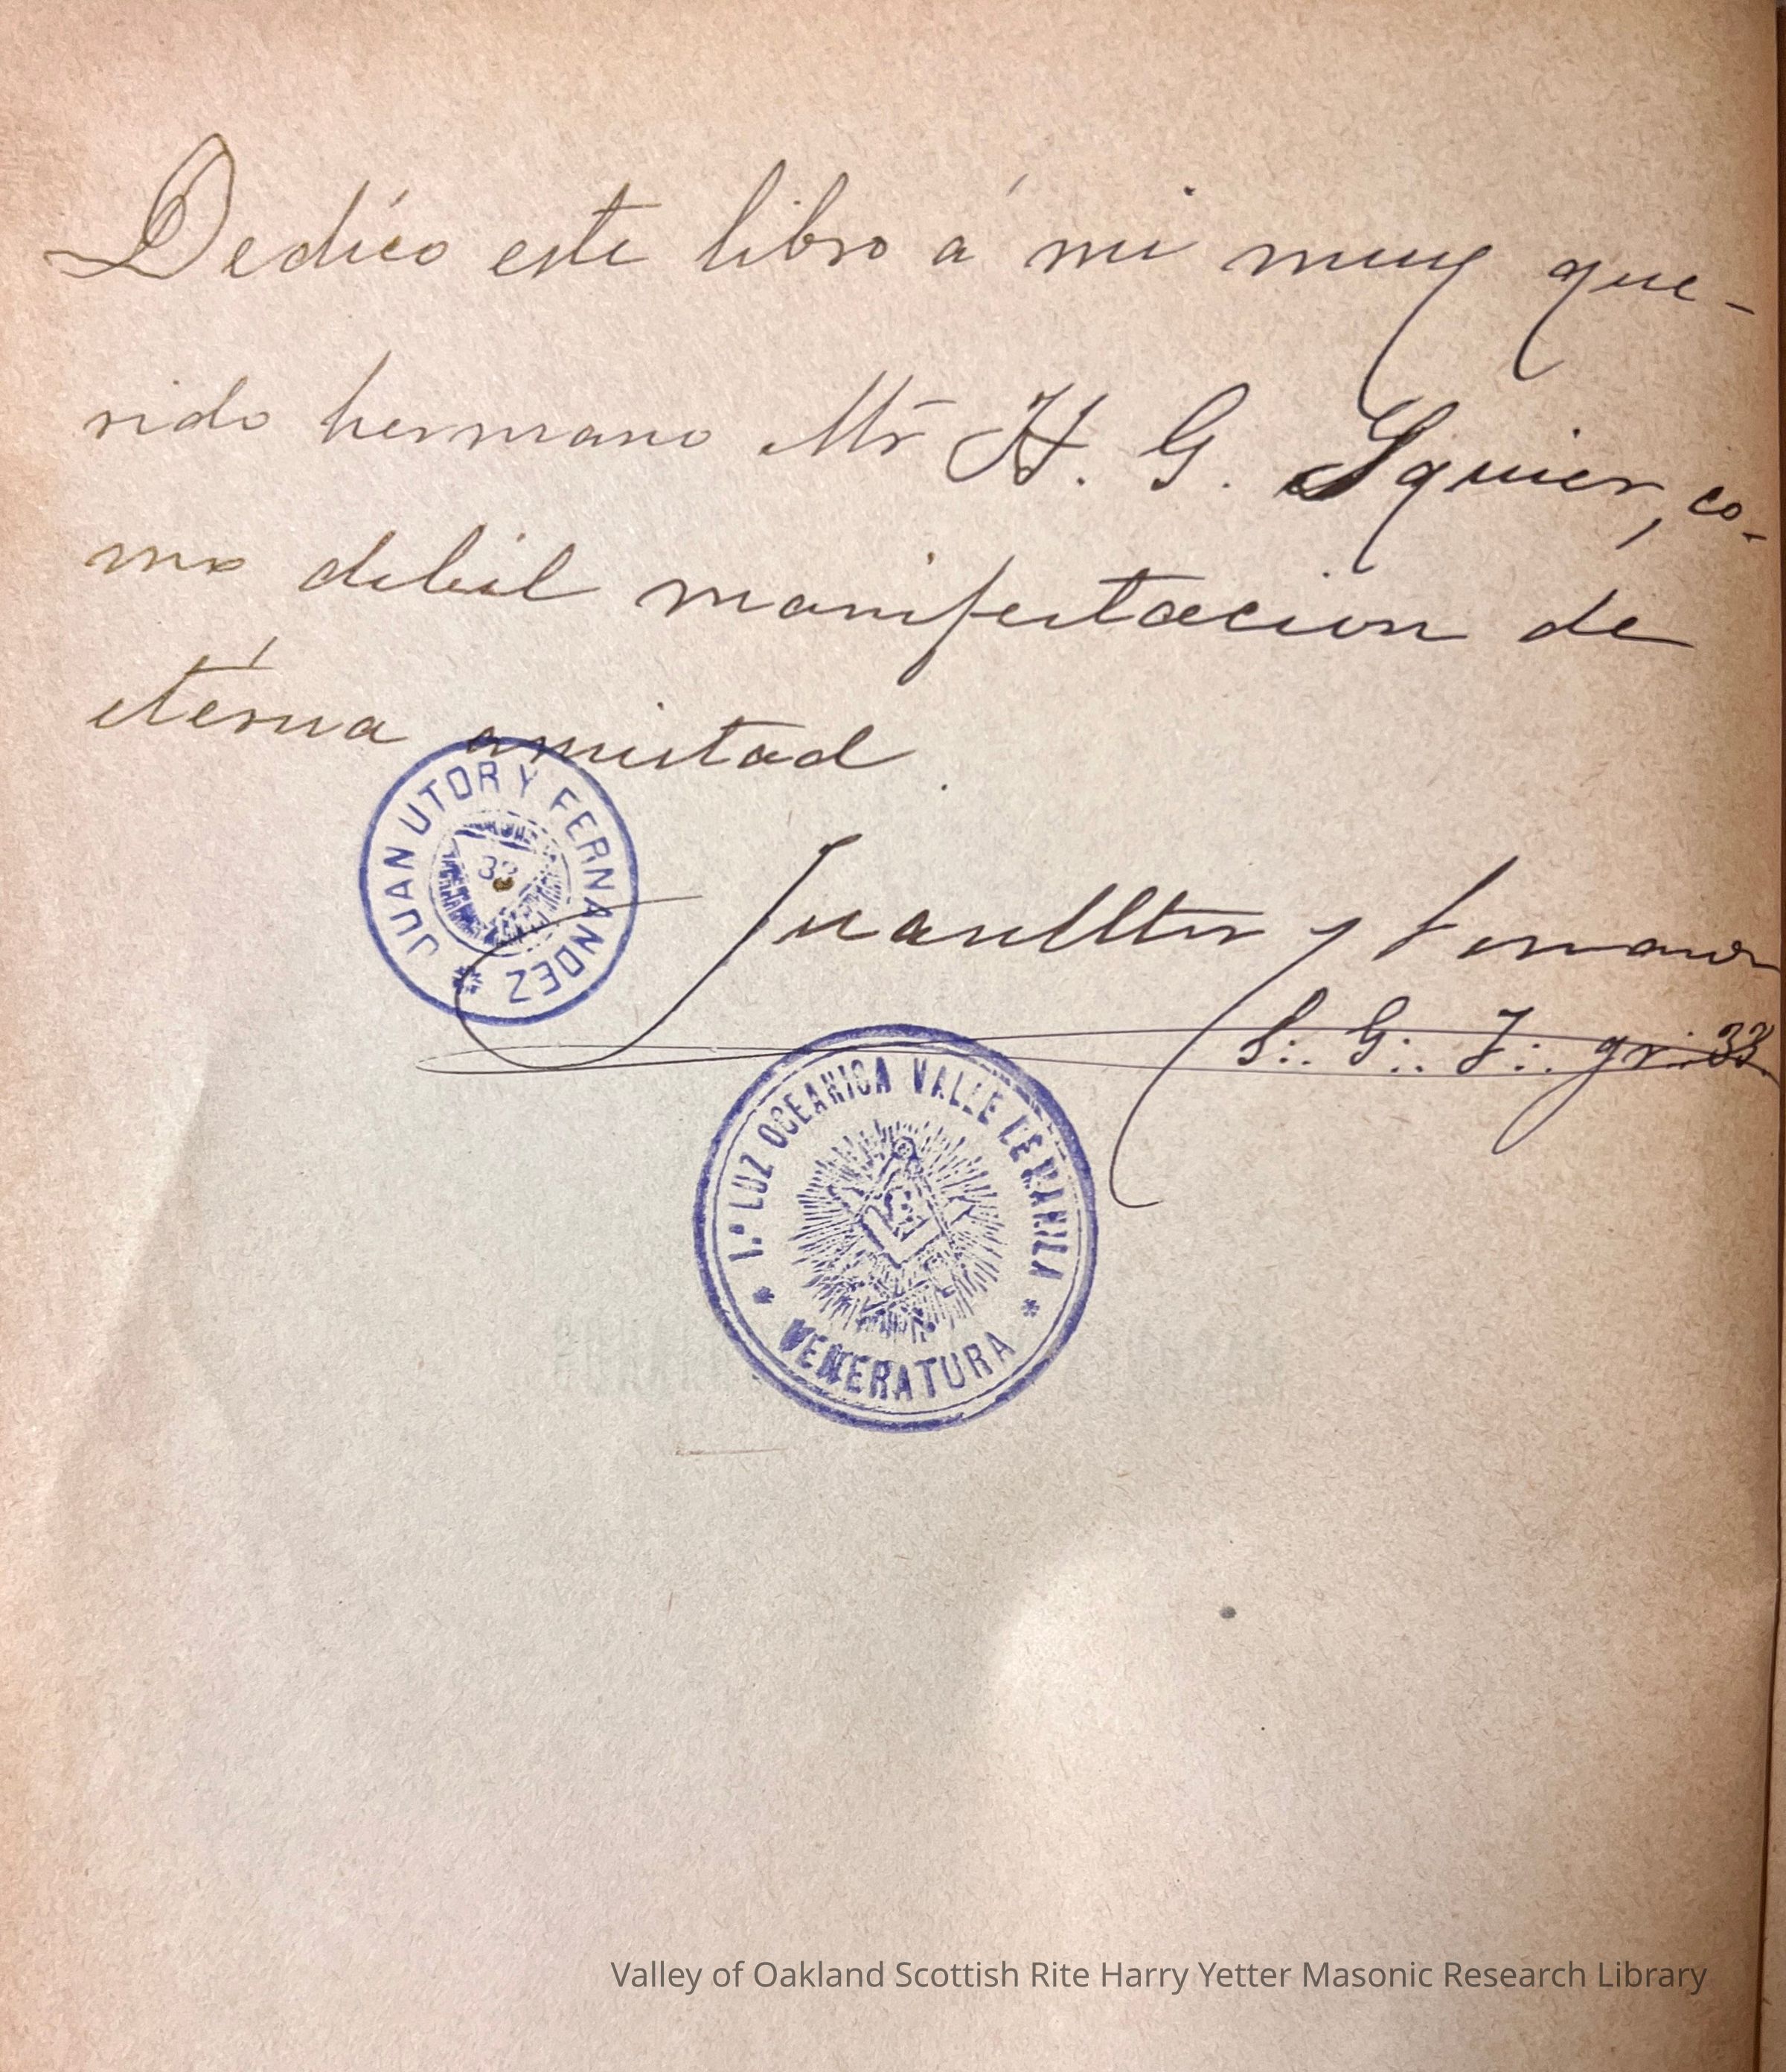 Dedico este libro á mi muy que-
rido hermano Mr H. G. Squier, co-
mo debil manifestacion de
etérna amistad.
JUAN UTOR Y FERNANDEZ
33
Juan Utor y Fernan
S∴ G∴ I∴ gr∴ 33
1.ª LUZ OCEANICA VALLE DE MANILA
VENERATURA
Valley of Oakland Scottish Rite Harry Yetter Masonic Research Library